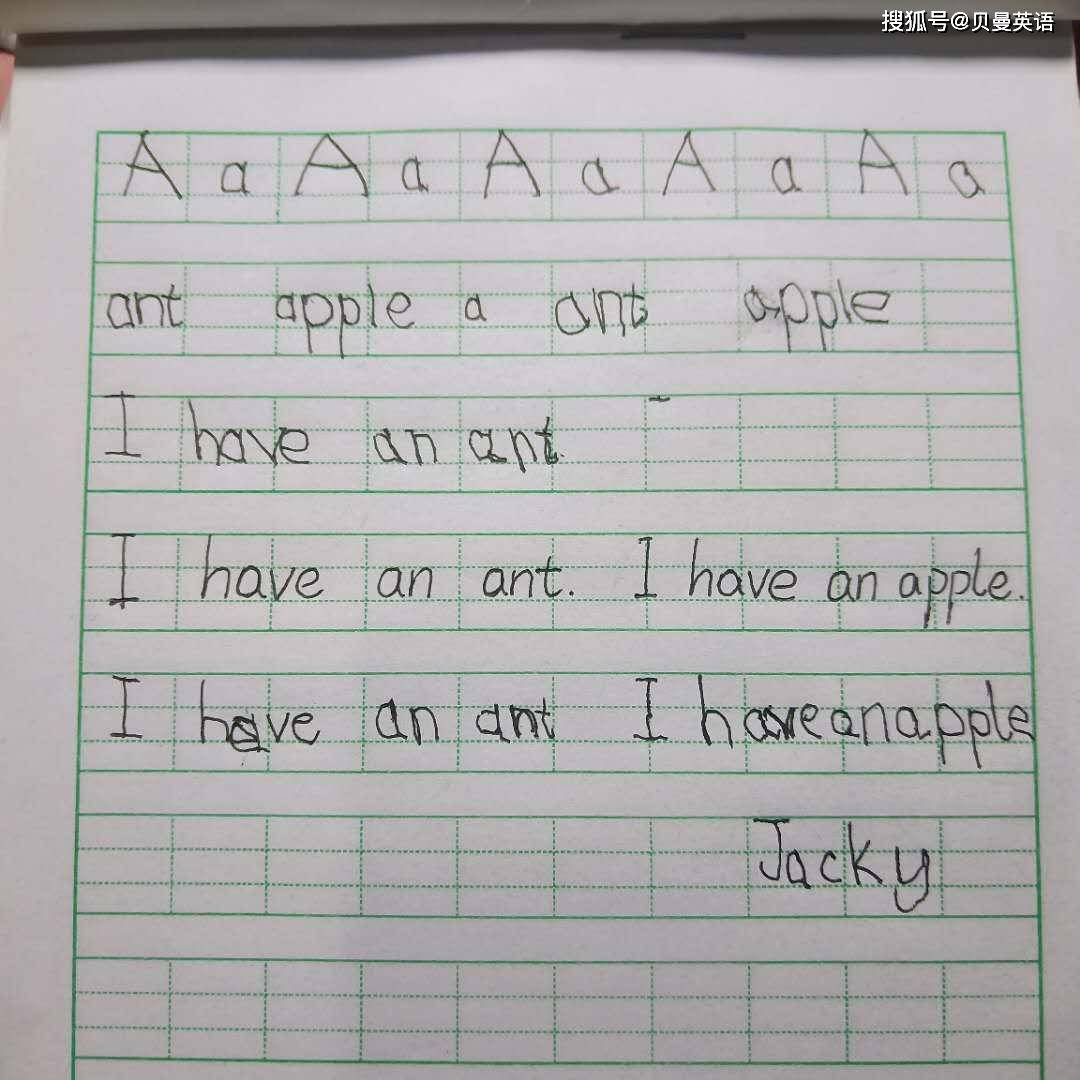 搜狐号@贝曼英语
A a A a A a A a A a
ant apple a ant apple
I have an ant.
I have an ant. I have an apple.
I have an ant I have an apple
Jacky